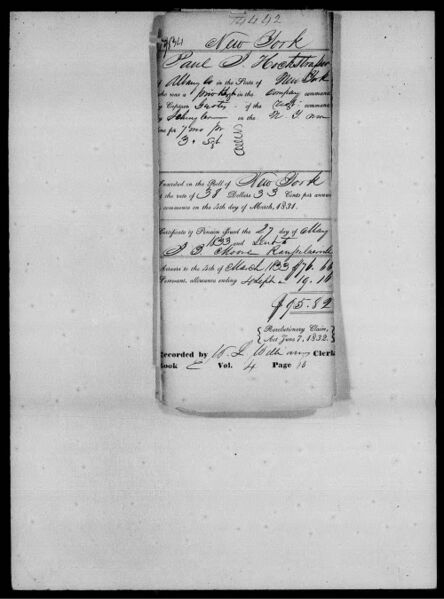 New York
Paul J. Hochstrasser
Albany Co in the State of New York
who was a private in the company command
by Captain of the Regt. commanded
by in the N. Y.
line for 7 mo pr
3 Sgt
Inscribed on the Roll of New York
at the rate of 38 Dollars 33 Cents per annum
commence on the 4th day of March, 1831.
Certificate of Pension issued the 27 day of May
1833 and sent to
J. B. Moore Rensselaerville
Arrears to the 4th of March 1833 $76.66
Semi-annl. allowance ending 4 Sept 19.16
$95.82
Revolutionary Claim,
Act June 7, 1832.
Recorded by W. L. Williams Clerk
Book C Vol. 4 Page